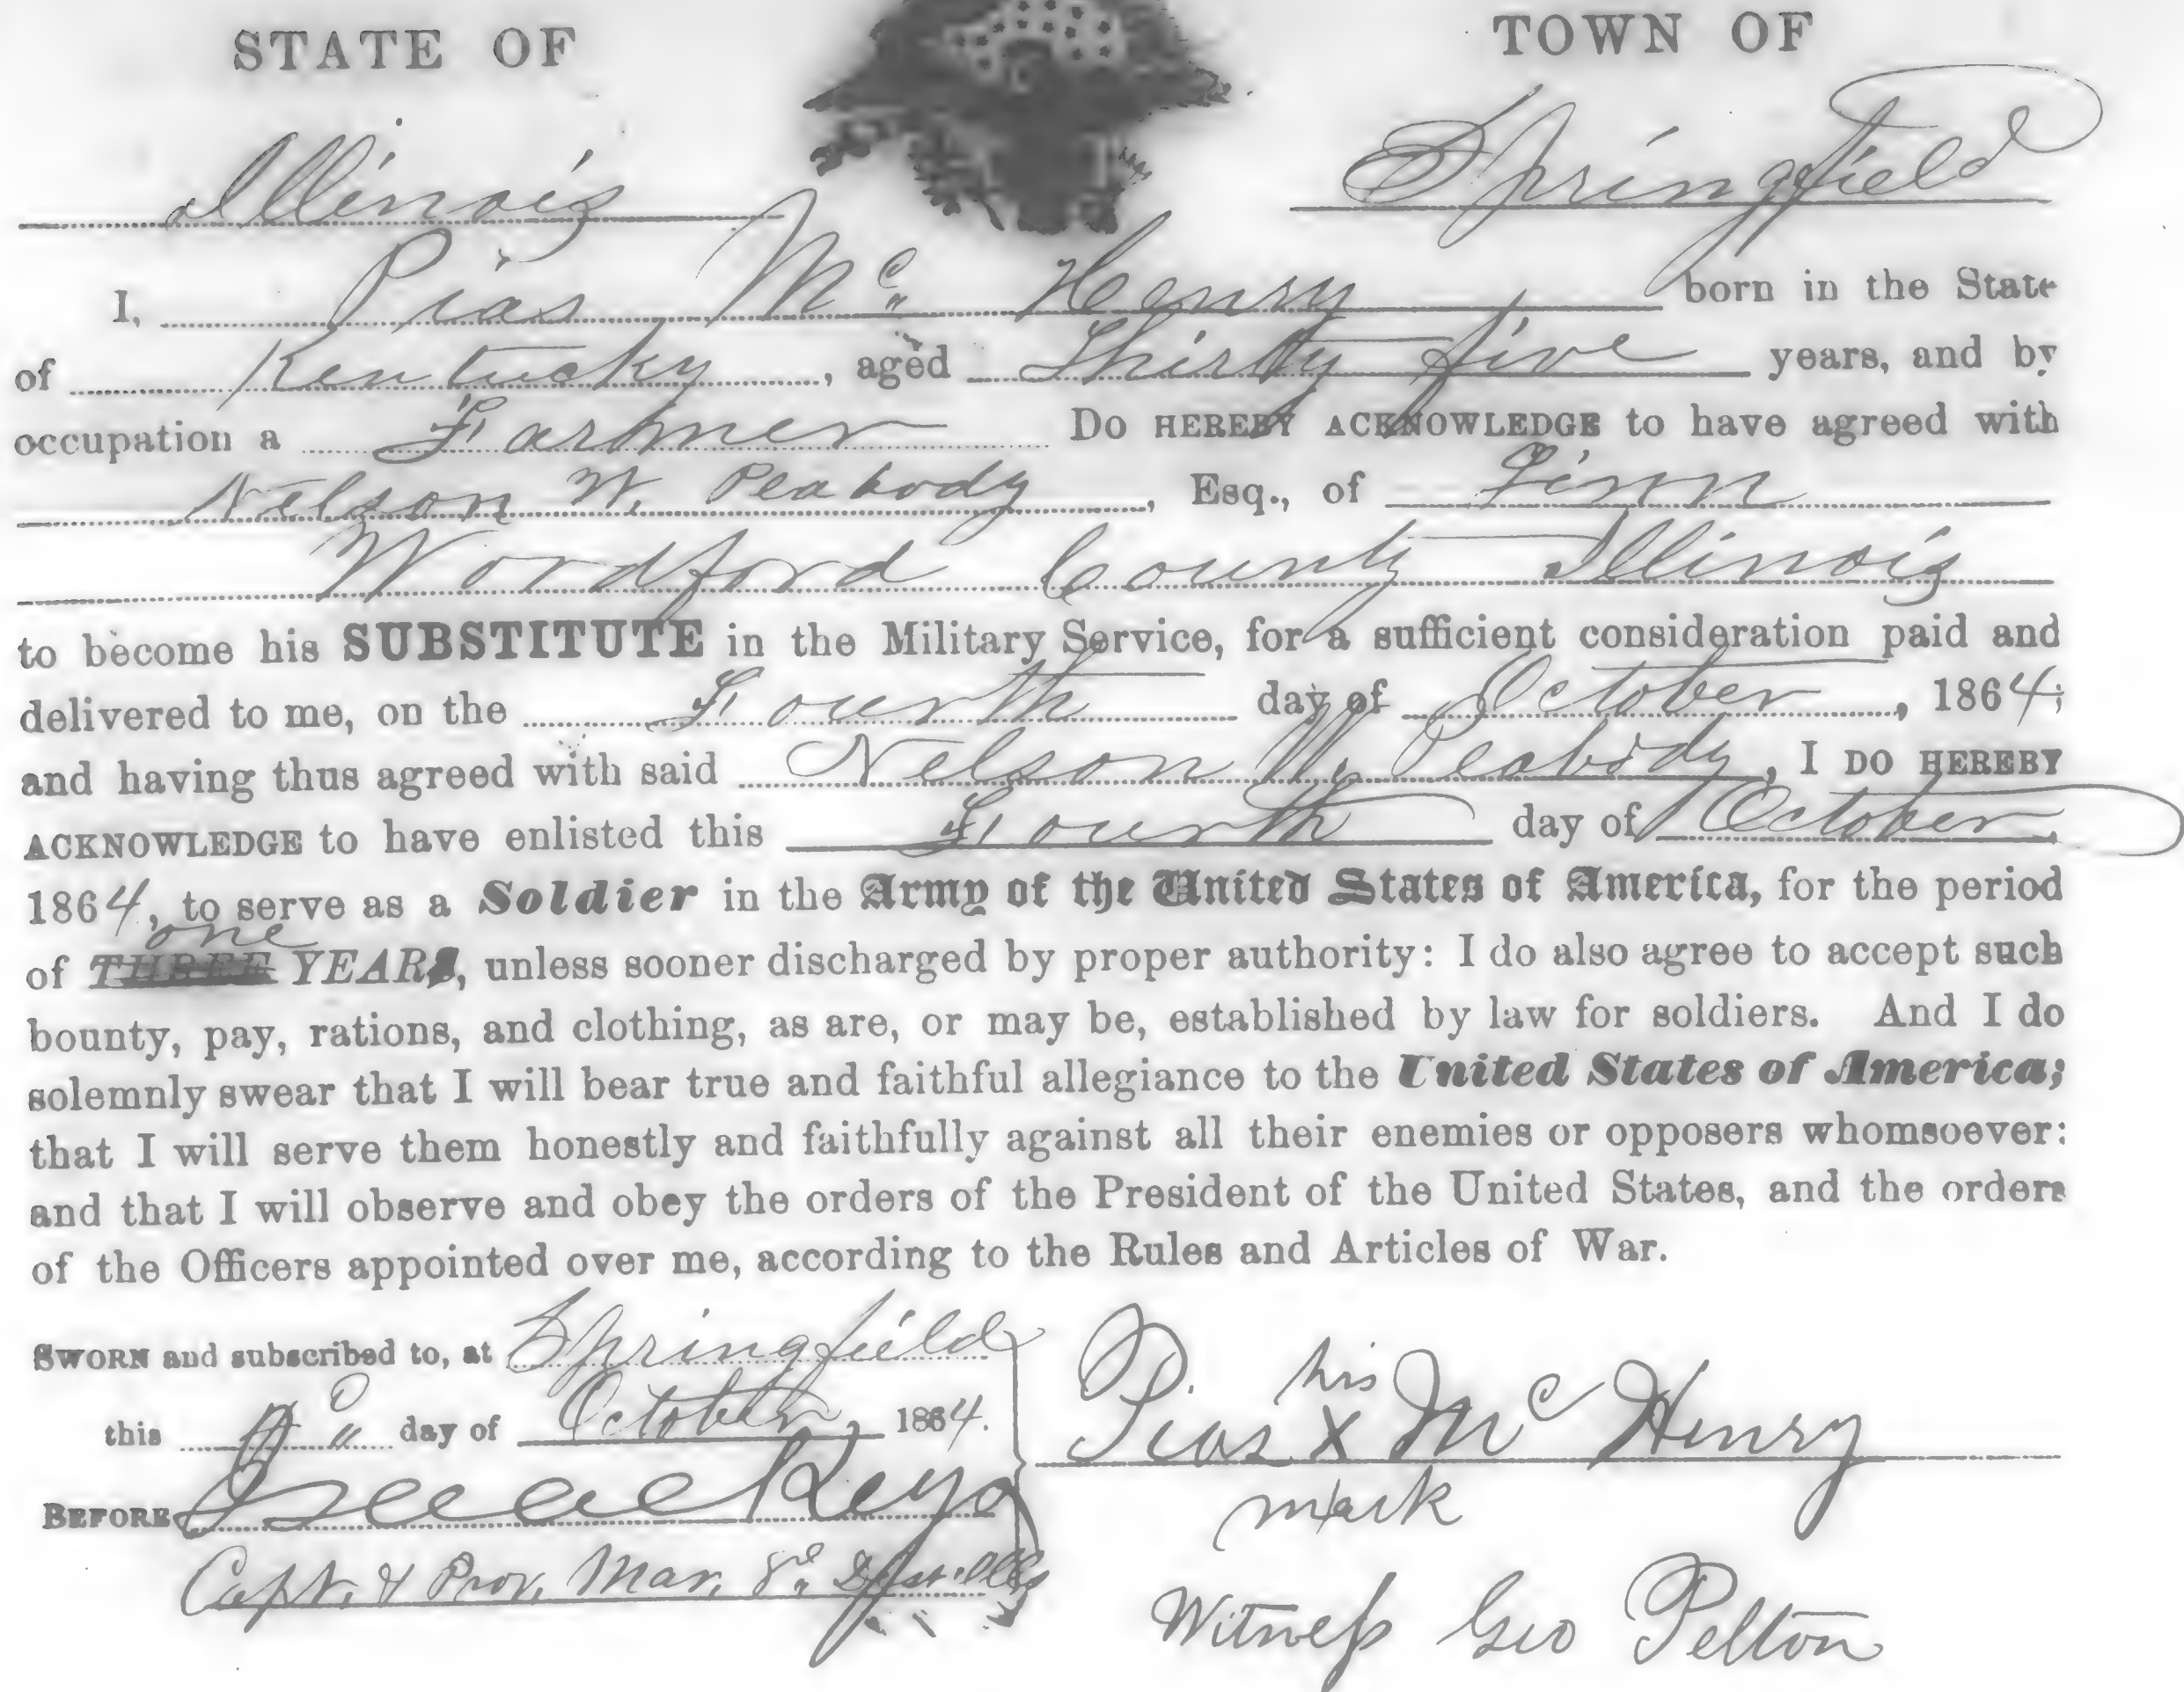 STATE OF TOWN OF
Illinois Springfield
I, Pias Mc Henry born in the State
of Kentucky, aged Thirty five years, and by
occupation a Farmer DO HEREBY ACKNOWLEDGE to have agreed with
Nelson W. Peabody, Esq., of Linn
Wordford County Illinois
to become his SUBSTITUTE in the Military Service, for a sufficient consideration paid and
delivered to me, on the Fourth day of October, 1864;
and having thus agreed with said Nelson W. Peabody, I DO HEREBY
ACKNOWLEDGE to have enlisted this Fourth day of October,
1864, to serve as a Soldier in the Army of the United States of America, for the period
one
of THREE YEARS, unless sooner discharged by proper authority: I do also agree to accept such
bounty, pay, rations, and clothing, as are, or may be, established by law for soldiers. And I do
solemnly swear that I will bear true and faithful allegiance to the United States of America;
that I will serve them honestly and faithfully against all their enemies or opposers whomsoever:
and that I will observe and obey the orders of the President of the United States, and the orders
of the Officers appointed over me, according to the Rules and Articles of War.
SWORN and subscribed to, at Springfield
this day of October, 1864.
BEFORE Isaac Keys
Capt. & Prov. Mar. 8th Dist Ills
his
Pias X Mc Henry
mark
Witness Geo Pelton